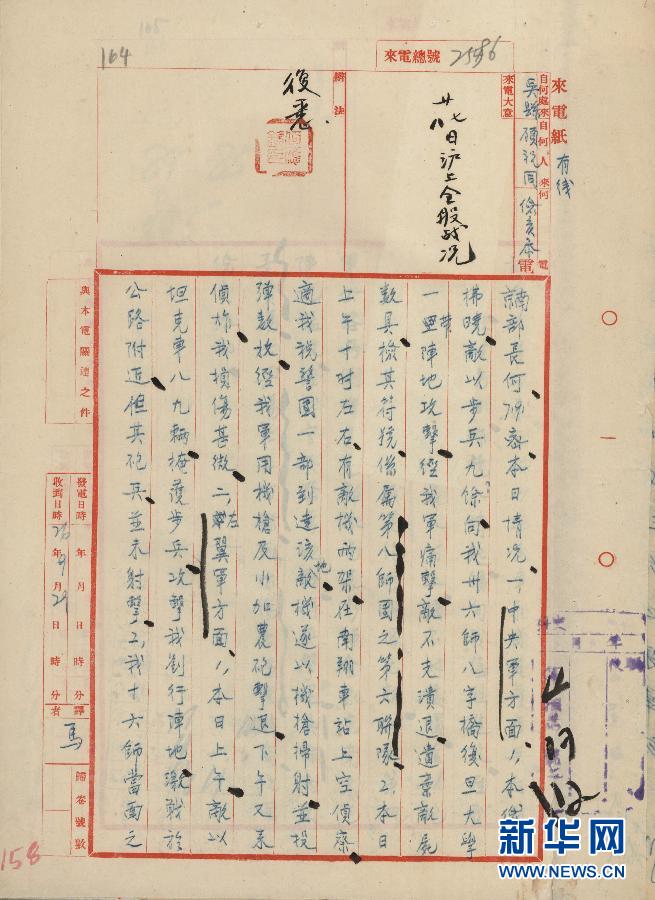 164
來電總號 2586
來電紙 有线
自何處來 自何人來 何電
吳縣顧祝同 儉亥叅 電
來電大意
廿七八日沪上全般战况
辦法
復悉.
南京部長何 密本日情況一、中央軍方面1、本
拂曉敵以步兵九餘向我卅六師八字橋復旦大學
一帶陣地攻擊經我軍痛擊敵不克潰退遺棄敵屍
数具檢其符號係屬第八師團之第六聯隊2、本日
上午十时左右有敵機兩架在南翔車站上空偵察
適我税警團一部到達該地敵機遂以機槍掃射並投
弹数枚經我軍用機槍及小加農砲擊退下午又來
偵炸我損傷甚微二、左翼軍方面1、本日上午敵以
坦克車八九輛掩護步兵攻擊我劉行陣地激戰於
公路附近但其砲兵並未射擊2、我十六師當面之
與本電關連之件
發電日時 年 月 日 時 分
收到日時 26年9月29日 時 分
譯者 馬
歸卷號數
158
112
新华网
WWW.NEWS.CN